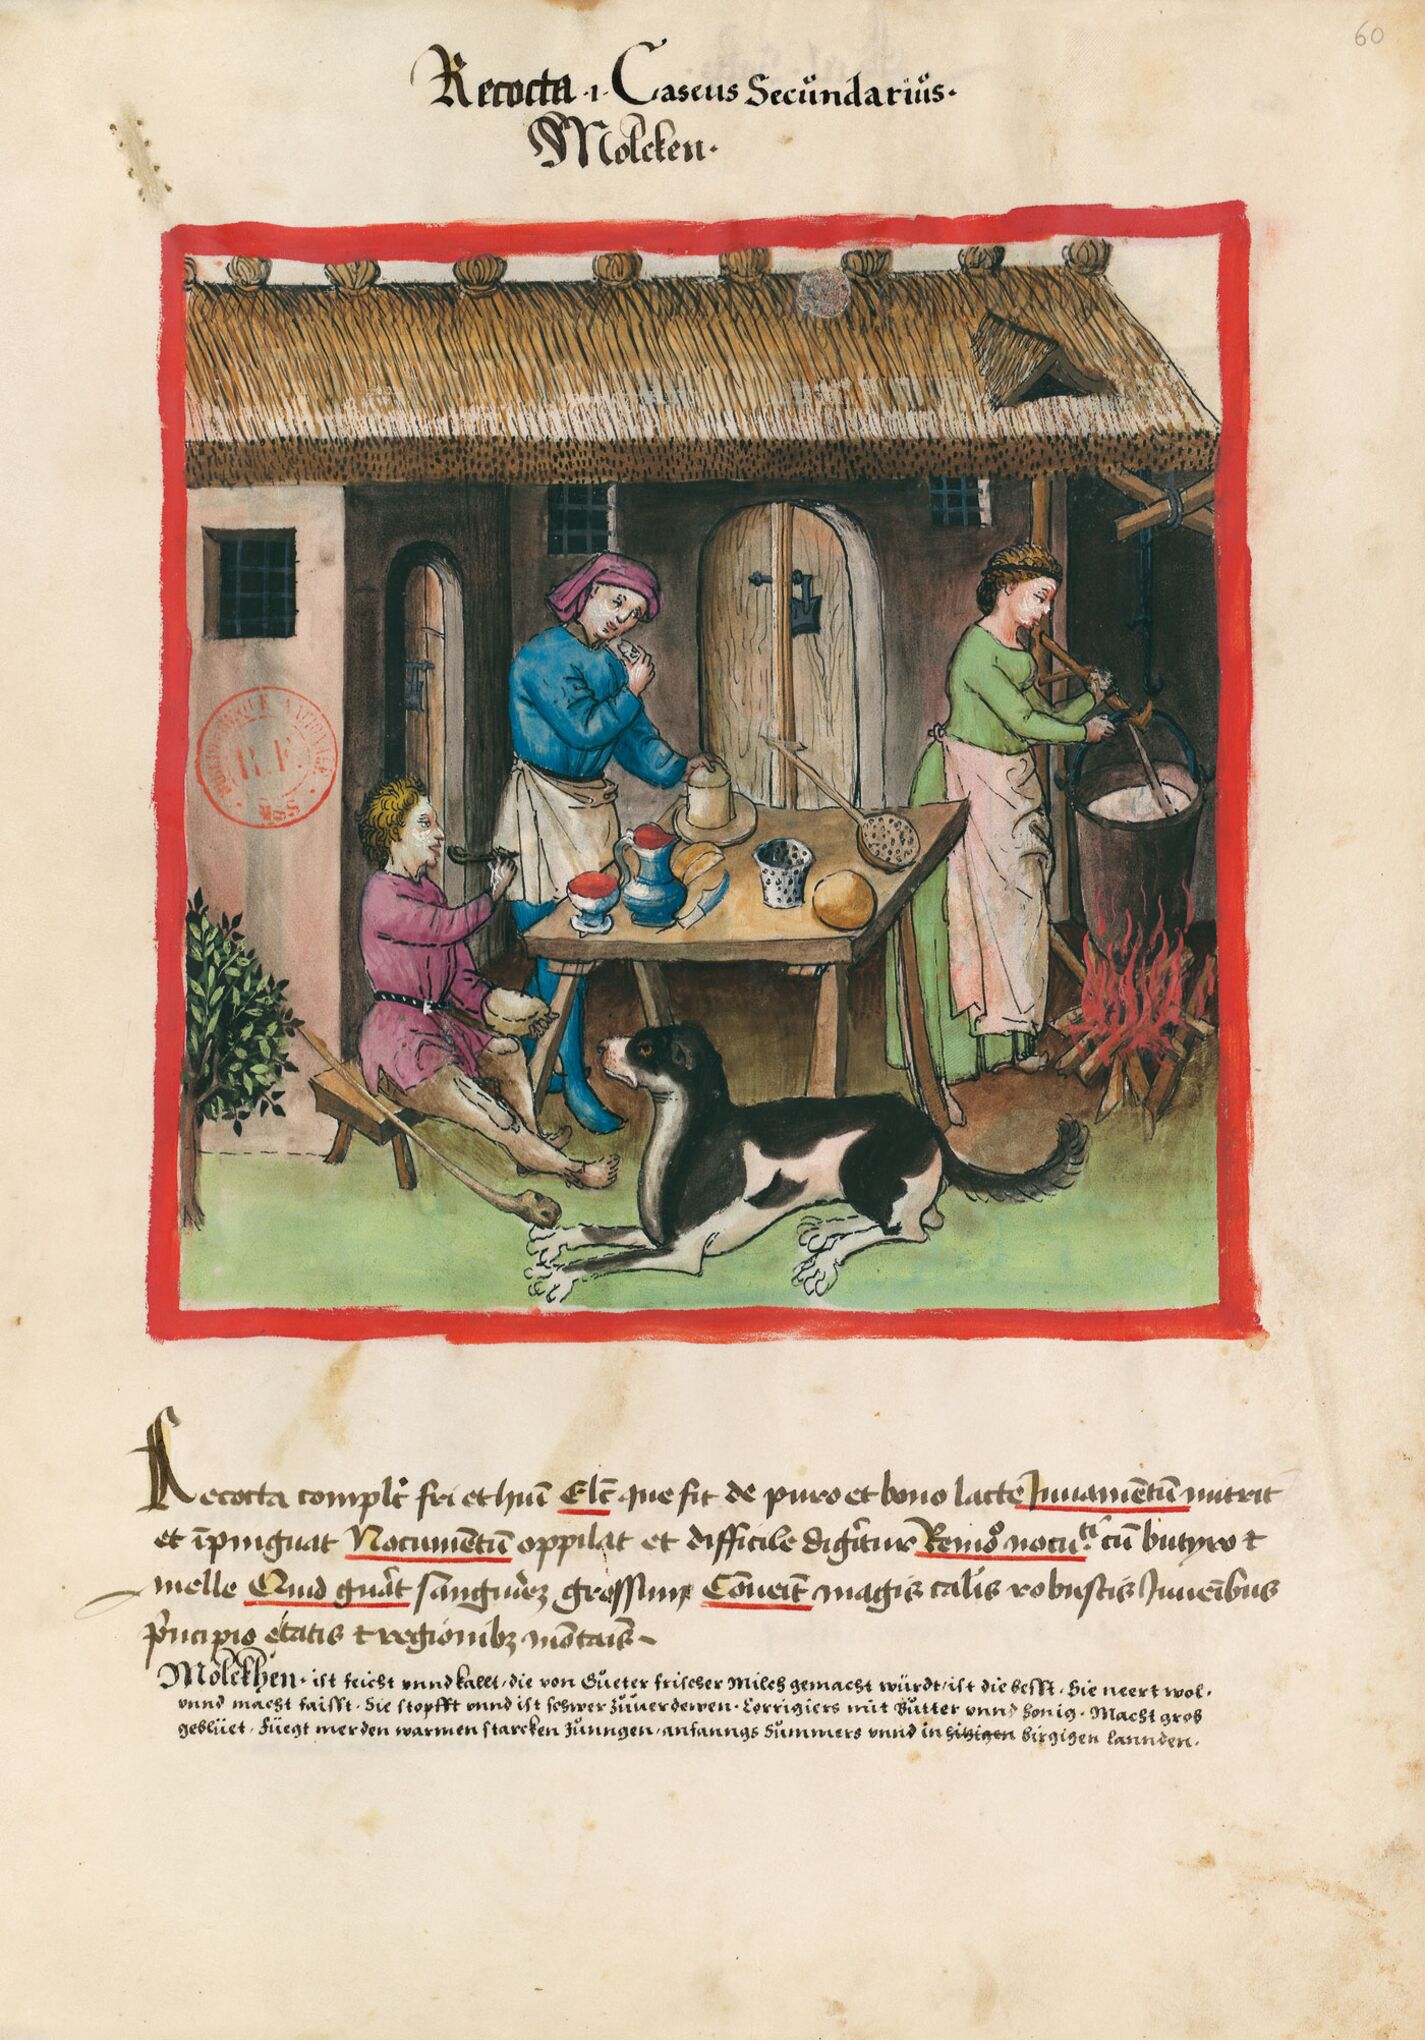 60
Recocta .i. Caseus Secůndariůs.
Molcken.
BIBLIOTHEQUE NATIONALE R.F. MSS
Recocta complo fri et hui Elc que fit de puro et bono lacte Juuamētū nutrit
et īpinguat Nocumētū oppilat et difficile digitur Remo nocuti cū butyro ⁊
melle Quid gnat sanguinez grossum Cōueīt magis calis robustis Juueībus
pncipio etatis ⁊ regionibz mōtais
Molckhen. ist feicht vnnd kallt, die von Gůeter frischer Milch gemacht würdt, ist die besst. Sie neert wol.
vnnd macht faisst. Sie stopfft vnnd ist schwer zůuerdewen. Corrigiers mit Bůtter vnnd honig. Macht grob
geblüet. Füegt mer den warmen starcken Jůnngen, anfanngs Sůmmers vnnd in hitzigen birgigen lannden.